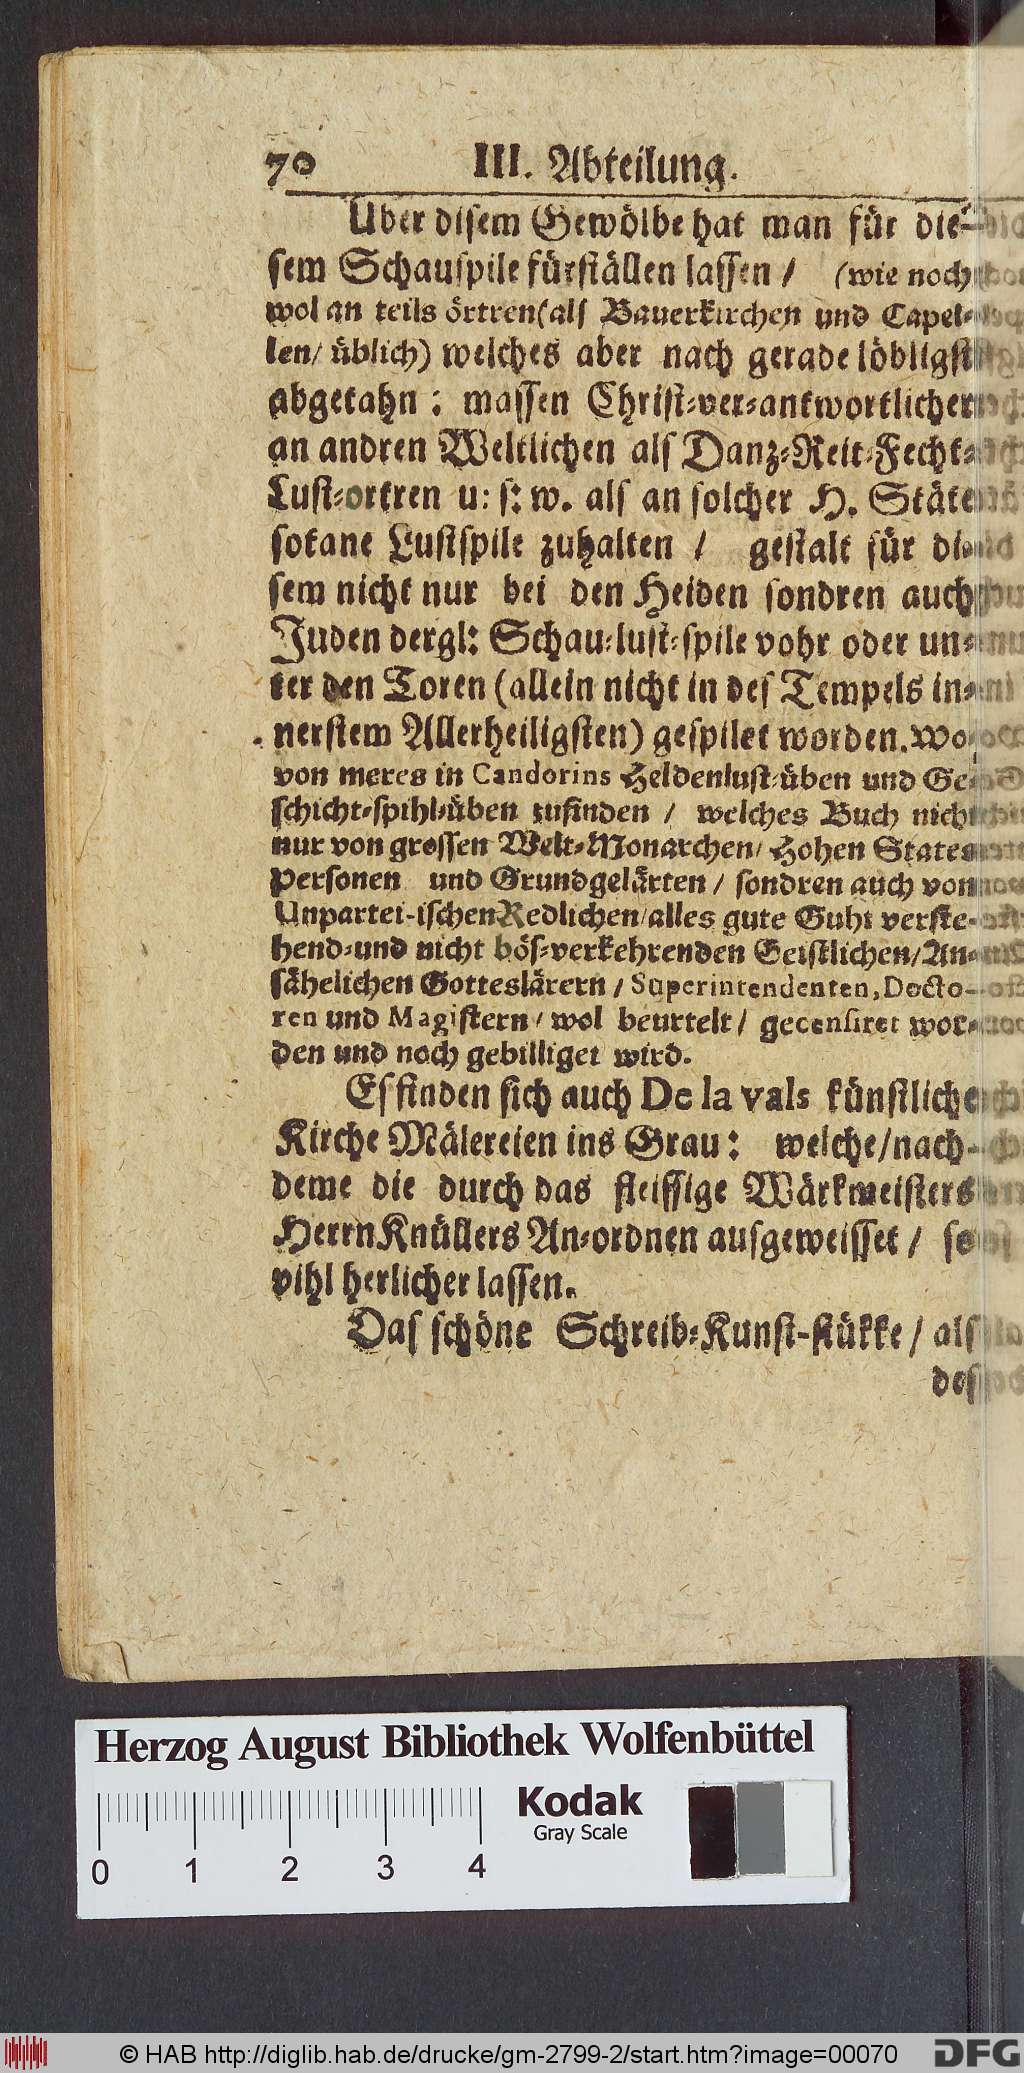 70 III. Abteilung.
Über disem Gewölbe hat man für die-
sem Schauspile fürställen lassen / (wie noch
wol an teils örtren (als Bauerkirchen und Capel-
len/ üblich) welches aber nach gerade löbligst
abgetahn: massen Christ-ver-antwortlicher
an andren Weltlichen als Danz-Reit-Fecht-
Lust-ortren u: s: w. als an solcher H. Stäte
sotane Lustspile zuhalten / gestalt für di-
sem nicht nur bei den Heiden sondren auch
Juden dergl: Schau-lust-spile vohr oder un-
ter den Toren (allein nicht in des Tempels in-
nerstem Allerheiligsten) gespilet worden. Wo-
von meres in Candorins Heldenlust-üben und Ge-
schicht-spihl-üben zufinden / welches Buch nicht
nur von grossen Welt-Monarchen/ Hohen States
Personen und Grundgelärten / sondren auch von
Unpartei-ischen Redlichen/ alles gute Guht verste-
hend-und nicht bös-verkehrenden Geistlichen/ An-
sähelichen Gotteslärern / Superintendenten, Docto-
ren und Magistern/ wol beurtelt/ gecensiret wor-
den und noch gebilliget wird.
Es finden sich auch De la vals künstliche
Kirche Mälereien ins Grau: welche/nach-
deme die durch das fleissige Wärkmeisters
Herrn Knüllers An-ordnen ausgeweisset / so
vihl herlicher lassen.
Das schöne Schreib-Kunst-stükke / als
des
Herzog August Bibliothek Wolfenbüttel
Kodak
Gray Scale
0 1 2 3 4
© HAB http://diglib.hab.de/drucke/gm-2799-2/start.htm?image=00070
DFG